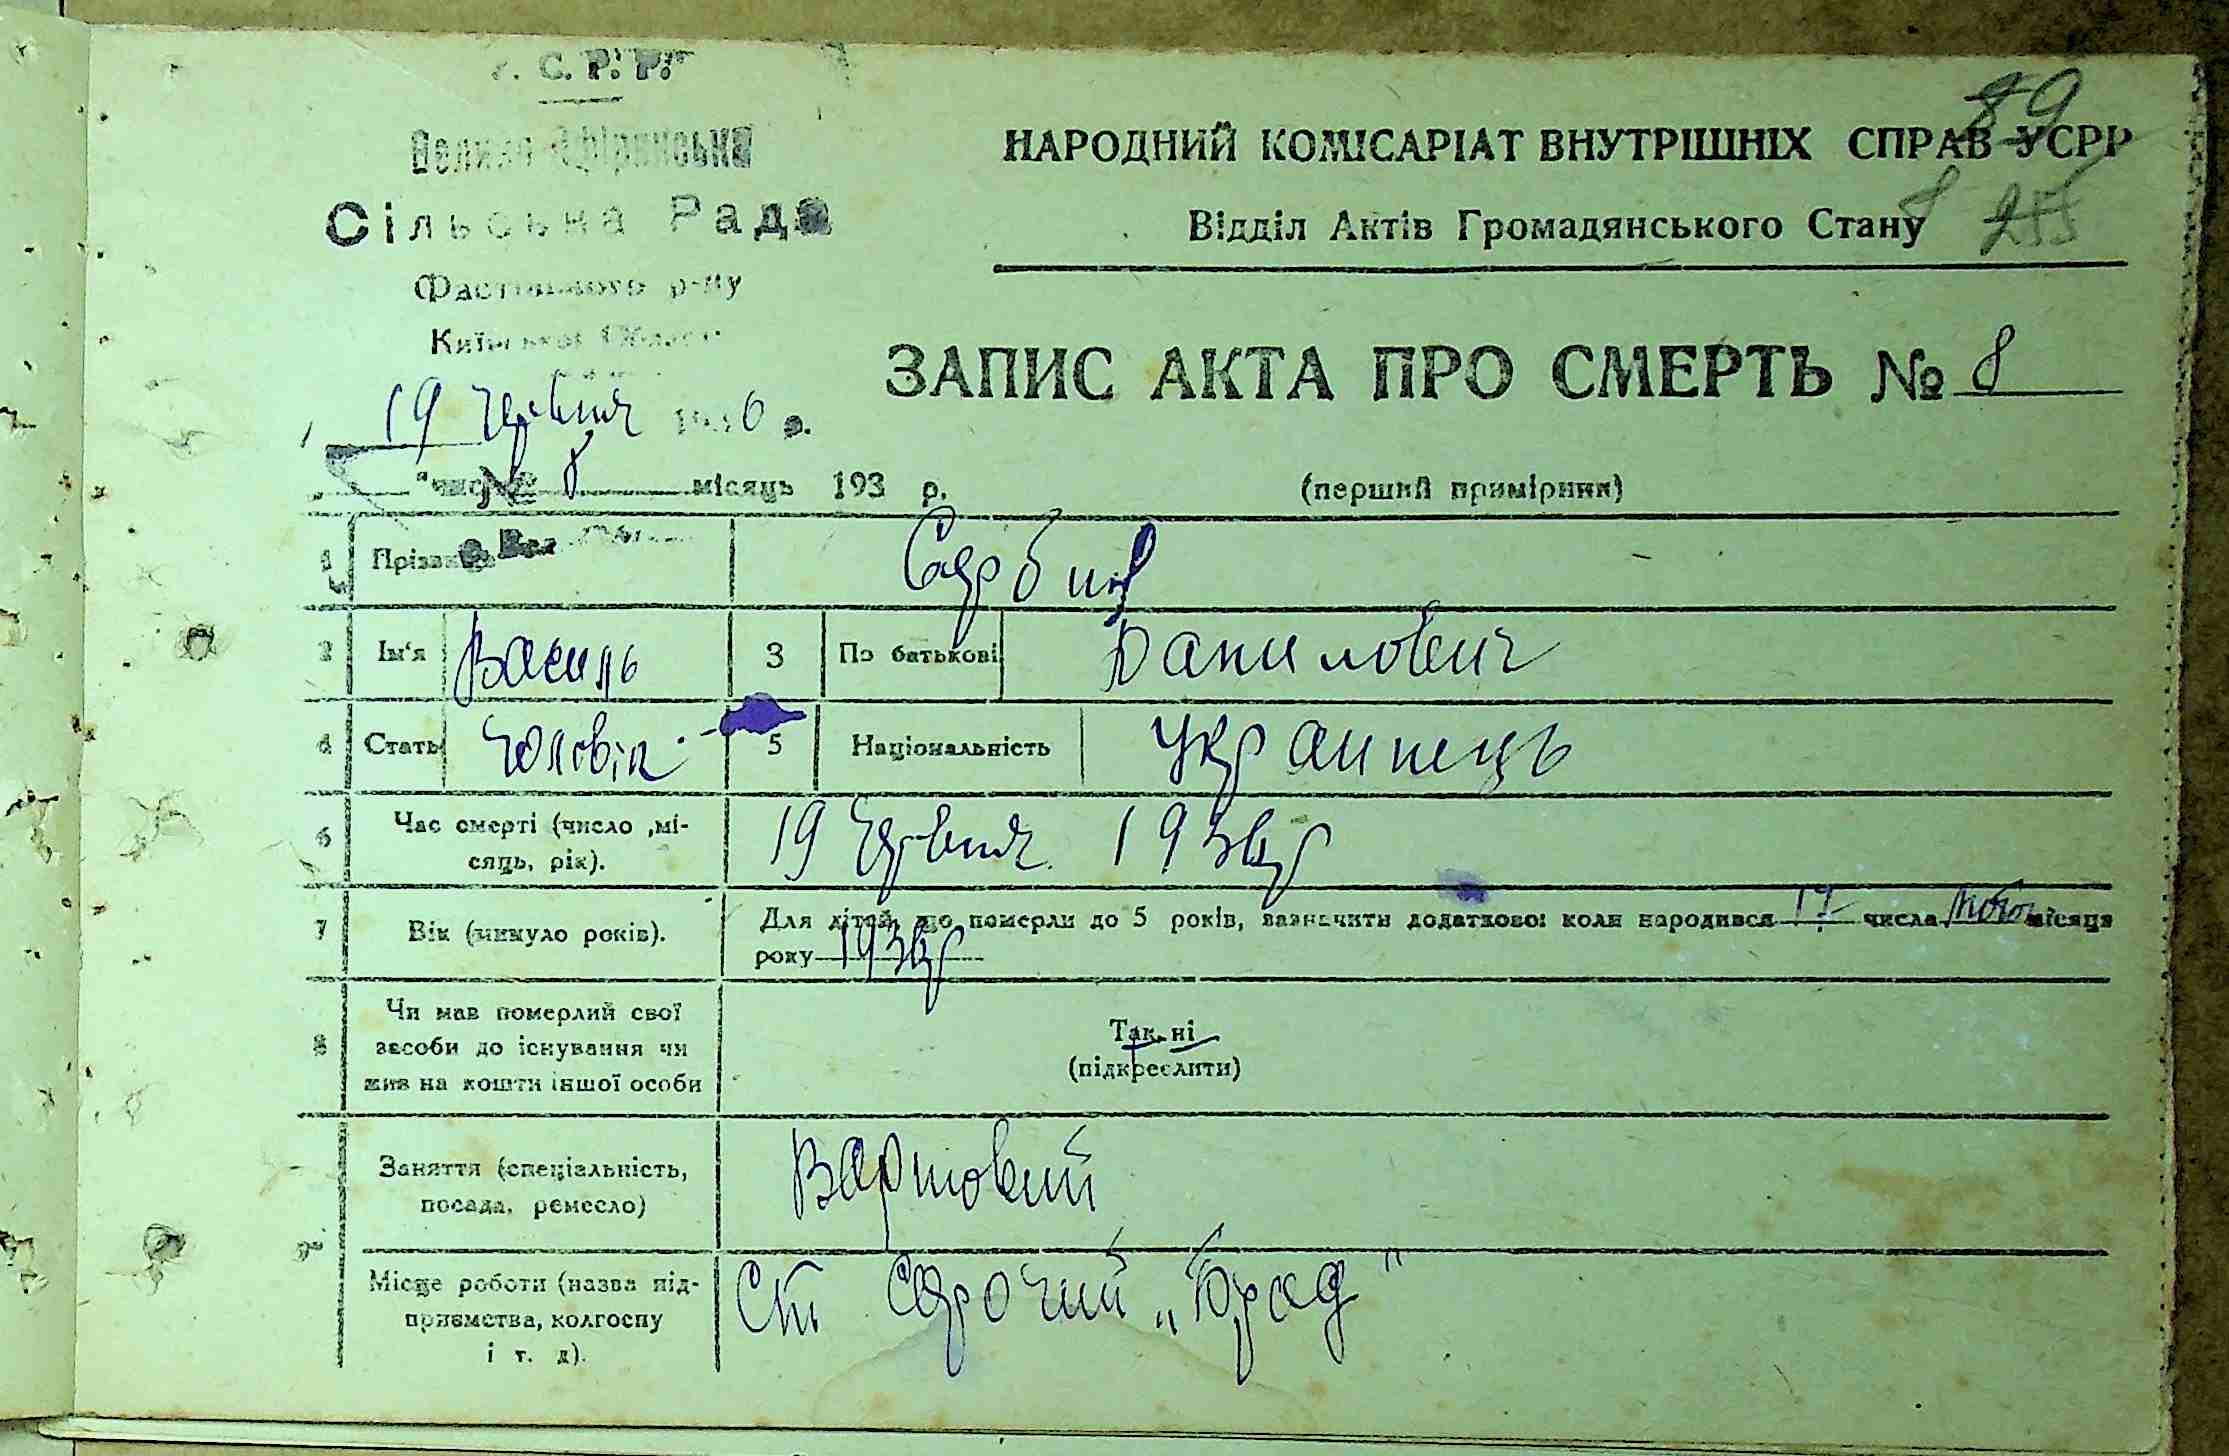 С. Р. Р.
89
НАРОДНИЙ КОМІСАРІАТ ВНУТРІШНІХ СПРАВ УСРР
Сільська Рада
8 255
Відділ Актів Громадянського Стану
Фастівського р-ну
Київської Області
ЗАПИС АКТА ПРО СМЕРТЬ № 8
19 червня 1936 р.
число місяць 193 р.
№ 8
(перший примірник)
1 Прізвище
2 Ім'я Василь 3 По батькові Данилович
4 Стать чоловік 5 Національність Украинець
6 Час смерті (число ,мі-
сяць, рік).
19 червня 1936р
7 Вік (минуло років).
Для дітей, що померли до 5 років, зазначити додатково: коли народився 17 числа лютого місяця
року 1936р
8 Чи мав померлий свої
засоби до існування чи
жив на кошти іншої особи
Так, ні
(підкреслити)
Заняття (спеціальність,
посада, ремесло)
Вартовий
9
Місце роботи (назва під-
приємства, колгоспу
і т. д).
Ст Сорочий „Брод"